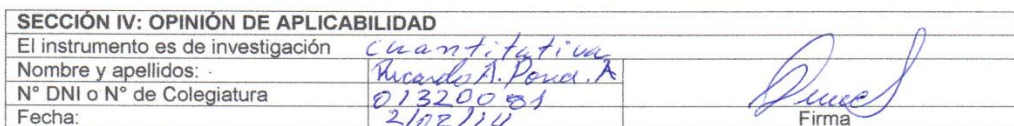 SECCIÓN IV: OPINIÓN DE APLICABILIDAD
El instrumento es de investigación cuantitativa
Nombre y apellidos: Ricardo A. A
N° DNI o N° de Colegiatura
Fecha: Firma